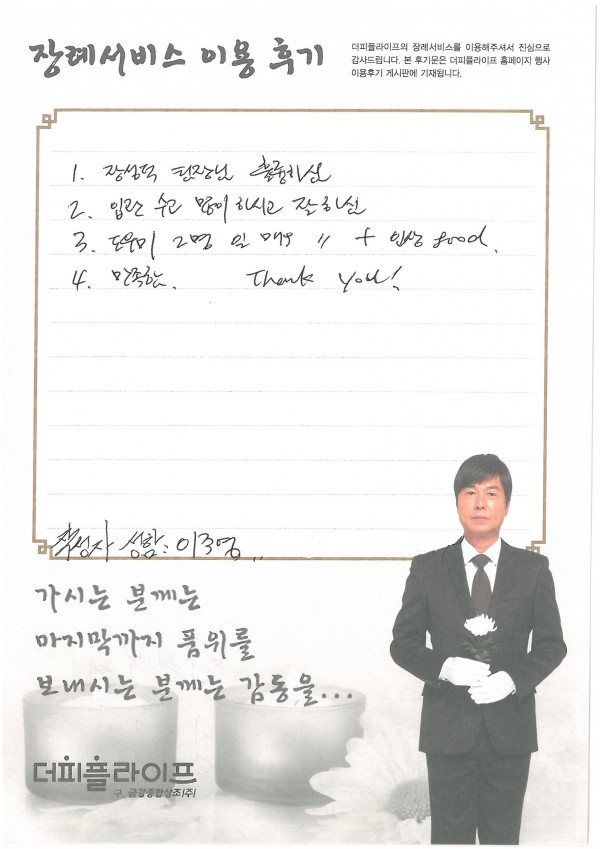 장례서비스 이용 후기
더피플라이프의 장례서비스를 이용해주셔서 진심으로
감사드립니다. 본 후기문은 더피플라이프 홈페이지 행사
이용후기 게시판에 기재됩니다.
1. 장성덕 팀장님 훌륭하심
2. 입관 수고 많이 하시고 잘하심
3. 도우미 2명 일 매우 〃 + 인상 good.
4. 만족함. Thank you!
작성자 성함 : 이주영
가시는 분께는
마지막까지 품위를
보내시는 분께는 감동을...
더피플라이프
구. 금강종합상조(주)